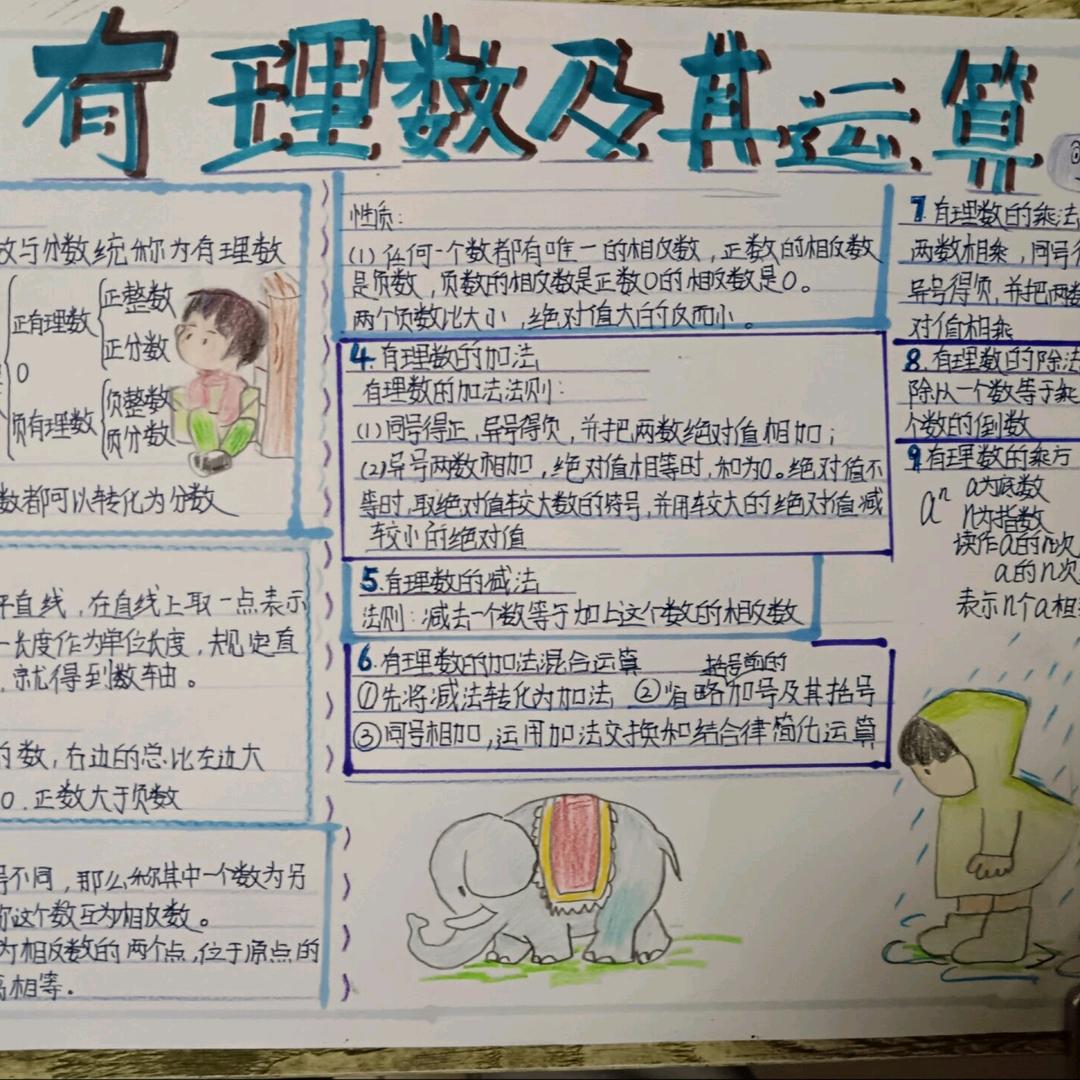 有理数及其运算
数与分数统称为有理数
正有理数
正整数
正分数
0
负有理数
负整数
负分数
数都可以转化为分数
平直线，在直线上取一点表示
一长度作为单位长度，规定直
，就得到数轴。
的数，右边的总比左边大
0．正数大于负数
号不同，那么称其中一个数为另
称这个数互为相反数。
为相反数的两个点，位于原点的
离相等．
性质：
(1)任何一个数都有唯一的相反数，正数的相反数
是负数，负数的相反数是正数0的相反数是0。
两个负数比大小，绝对值大的反而小。
4.有理数的加法
有理数的加法法则：
(1)同号得正，异号得负，并把两数绝对值相加；
(2)异号两数相加，绝对值相等时，和为0。绝对值不
等时，取绝对值较大数的符号，并用较大的绝对值减
较小的绝对值
5.有理数的减法
法则：减去一个数等于加上这个数的相反数
6.有理数的加法混合运算
括号前的
①先将减法转化为加法 ②省略加号及其括号
③同号相加，运用加法交换和结合律简化运算
7.有理数的乘法
两数相乘，同号得
异号得负，并把两数
对值相乘
8.有理数的除法
除从一个数等于乘
个数的倒数
9有理数的乘方
aⁿ a为底数
n为指数
读作a的n次
a的n次
表示n个a相